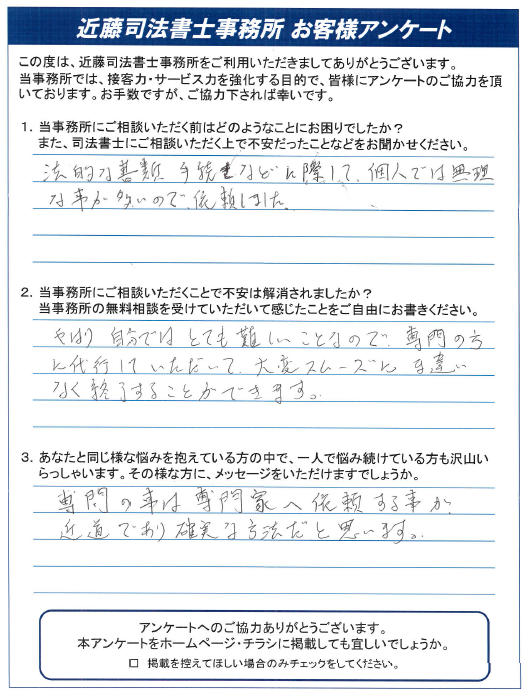 近藤司法書士事務所 お客様アンケート
この度は、近藤司法書士事務所をご利用いただきましてありがとうございます。
当事務所では、接客力・サービス力を強化する目的で、皆様にアンケートのご協力を頂
いております。お手数ですが、ご協力下されば幸いです。
1. 当事務所にご相談いただく前はどのようなことにお困りでしたか？
また、司法書士にご相談いただく上で不安だったことなどをお聞かせください。
法的な書類 手続きなどに際して、個人では無理
な事が多いので、依頼しました。
2. 当事務所にご相談いただくことで不安は解消されましたか？
当事務所の無料相談を受けていただいて感じたことをご自由にお書きください。
やはり 自分では とても 難しいことなので、専門の方
に代行していただいて、大変スムーズに 間違い
なく終了することができます。
3. あなたと同じ様な悩みを抱えている方の中で、一人で悩み続けている方も沢山い
らっしゃいます。その様な方に、メッセージをいただけますでしょうか。
専問の事は専門家へ依頼する事が
近道であり確実な方法だと思います。
アンケートへのご協力ありがとうございます。
本アンケートをホームページ・チラシに掲載しても宜しいでしょうか。
□ 掲載を控えてほしい場合のみチェックをしてください。